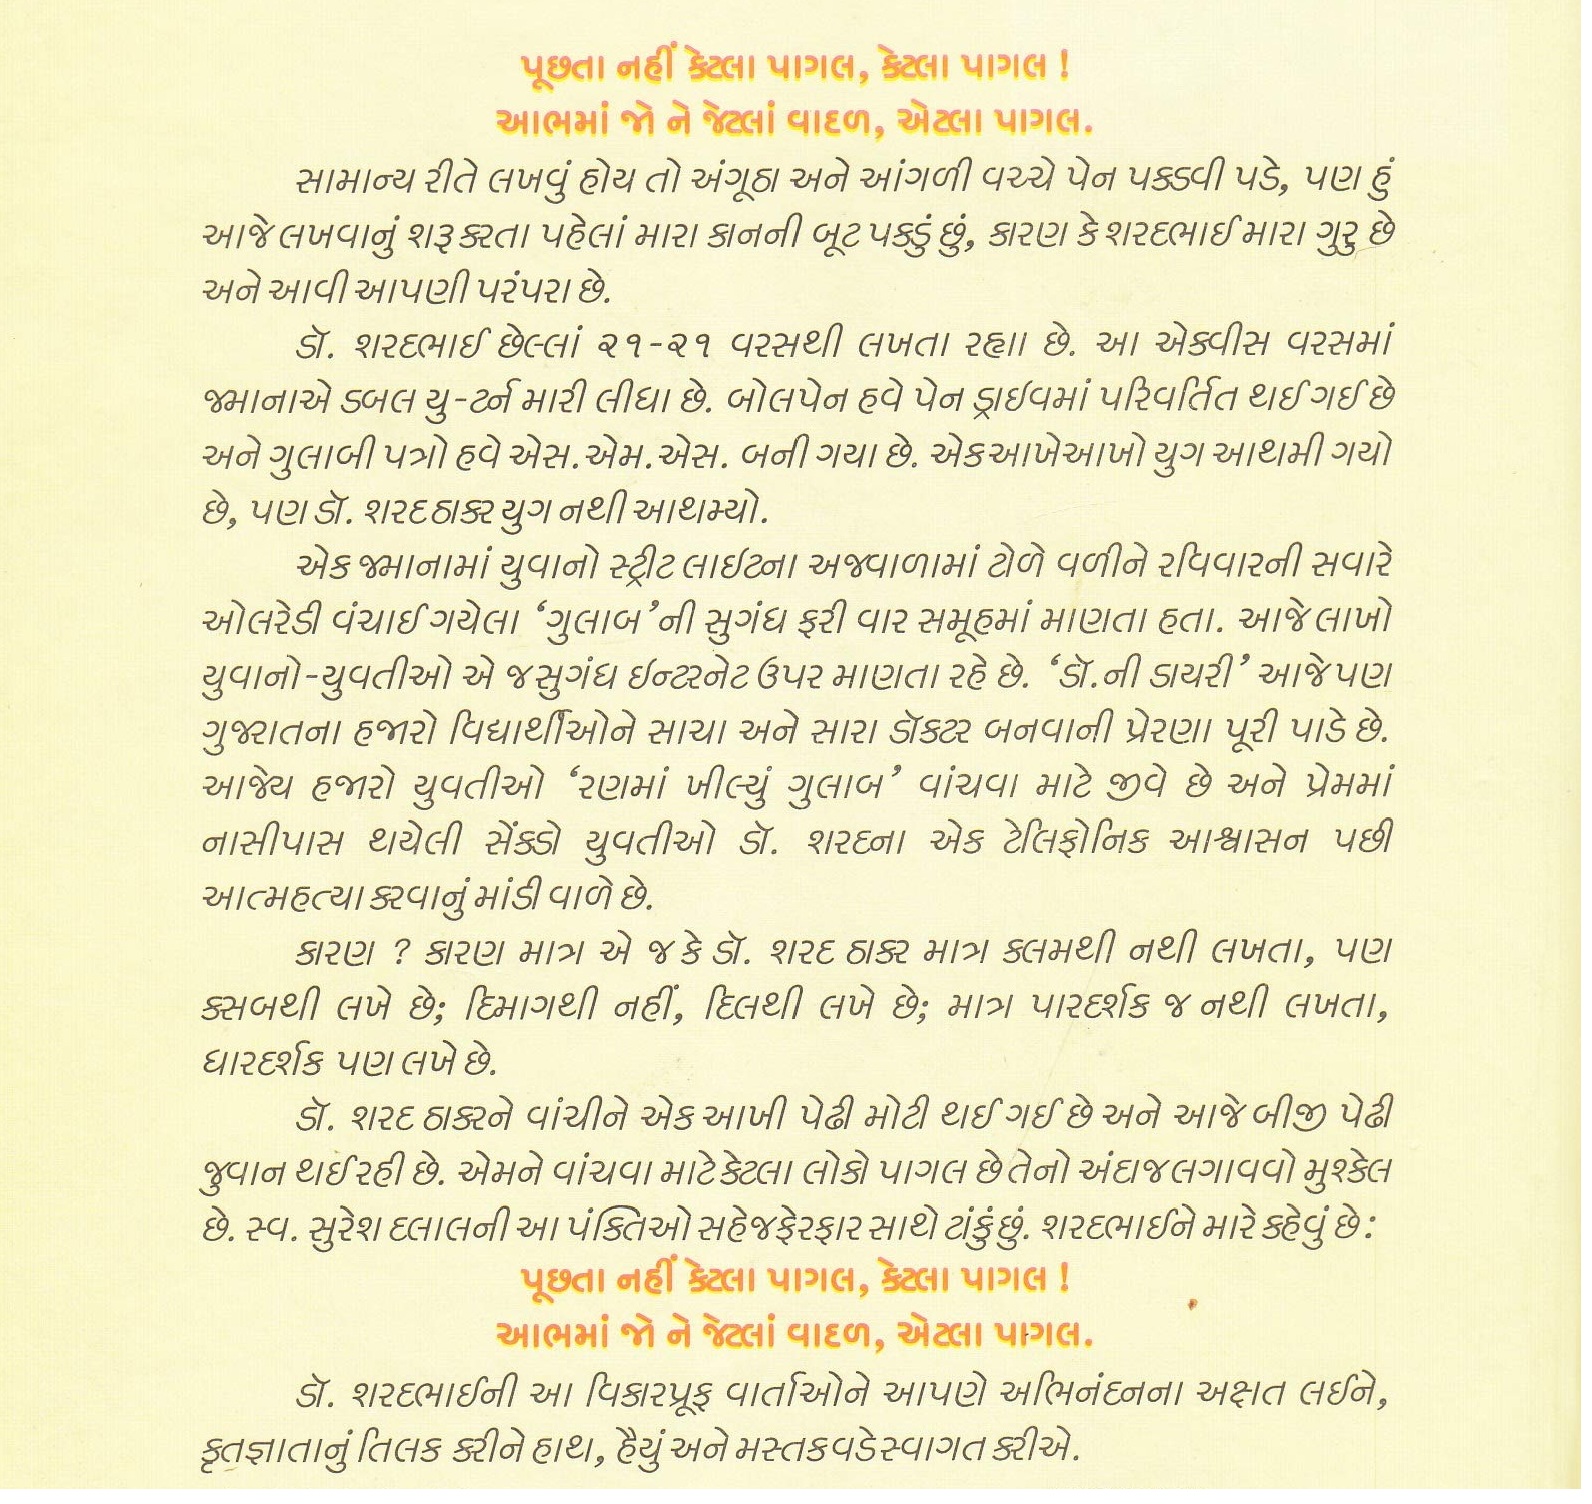 પૂછતા નહીં કેટલા પાગલ, કેટલા પાગલ !
આભમાં જો ને જેટલાં વાદળ, એટલા પાગલ.
સામાન્ય રીતે લખવું હોય તો અંગૂઠા અને આંગળી વચ્ચે પેન પકડવી પડે, પણ હું
આજે લખવાનું શરૂ કરતા પહેલાં મારા કાનની બૂટ પકડું છું, કારણ કે શરદભાઈ મારા ગુરુ છે
અને આવી આપણી પરંપરા છે.
ડૉ. શરદભાઈ છેલ્લાં ૨૧-૨૧ વરસથી લખતા રહ્યા છે. આ એકવીસ વરસમાં
જમાનાએ ડબલ યુ-ટર્ન મારી લીધા છે. બોલપેન હવે પેન ડ્રાઇવમાં પરિવર્તિત થઈ ગઈ છે
અને ગુલાબી પત્રો હવે એસ.એમ.એસ. બની ગયા છે. એક આખેઆખો યુગ આથમી ગયો
છે, પણ ડૉ. શરદ ઠાકર યુગ નથી આથમ્યો.
એક જમાનામાં યુવાનો સ્ટ્રીટ લાઇટના અજવાળામાં ટોળે વળીને રવિવારની સવારે
ઓલરેડી વંચાઈ ગયેલા ‘ગુલાબ’ની સુગંધ ફરી વાર સમૂહમાં માણતા હતા. આજે લાખો
યુવાનો-યુવતીઓ એ જ સુગંધ ઇન્ટરનેટ ઉપર માણતા રહે છે. ‘ડૉ.ની ડાયરી’ આજે પણ
ગુજરાતના હજારો વિદ્યાર્થીઓને સાચા અને સારા ડૉક્ટર બનવાની પ્રેરણા પૂરી પાડે છે.
આજેય હજારો યુવતીઓ ‘રણમાં ખીલ્યું ગુલાબ’ વાંચવા માટે જીવે છે અને પ્રેમમાં
નાસીપાસ થયેલી સેંકડો યુવતીઓ ડૉ. શરદના એક ટેલિફોનિક આશ્વાસન પછી
આત્મહત્યા કરવાનું માંડી વાળે છે.
કારણ ? કારણ માત્ર એ જ કે ડૉ. શરદ ઠાકર માત્ર કલમથી નથી લખતા, પણ
કસબથી લખે છે; દિમાગથી નહીં, દિલથી લખે છે; માત્ર પારદર્શક જ નથી લખતા,
ધારદર્શક પણ લખે છે.
ડૉ. શરદ ઠાકરને વાંચીને એક આખી પેઢી મોટી થઈ ગઈ છે અને આજે બીજી પેઢી
જુવાન થઈ રહી છે. એમને વાંચવા માટે કેટલા લોકો પાગલ છે તેનો અંદાજ લગાવવો મુશ્કેલ
છે. સ્વ. સુરેશ દલાલની આ પંક્તિઓ સહેજ ફેરફાર સાથે ટાંકું છું. શરદભાઈને મારે કહેવું છે :
પૂછતા નહીં કેટલા પાગલ, કેટલા પાગલ !
આભમાં જો ને જેટલાં વાદળ, એટલા પાગલ.
ડૉ. શરદભાઈની આ વિકારપ્રૂફ વાર્તાઓને આપણે અભિનંદનના અક્ષત લઈને,
કૃતજ્ઞાતાનું તિલક કરીને હાથ, હૈયું અને મસ્તક વડે સ્વાગત કરીએ.